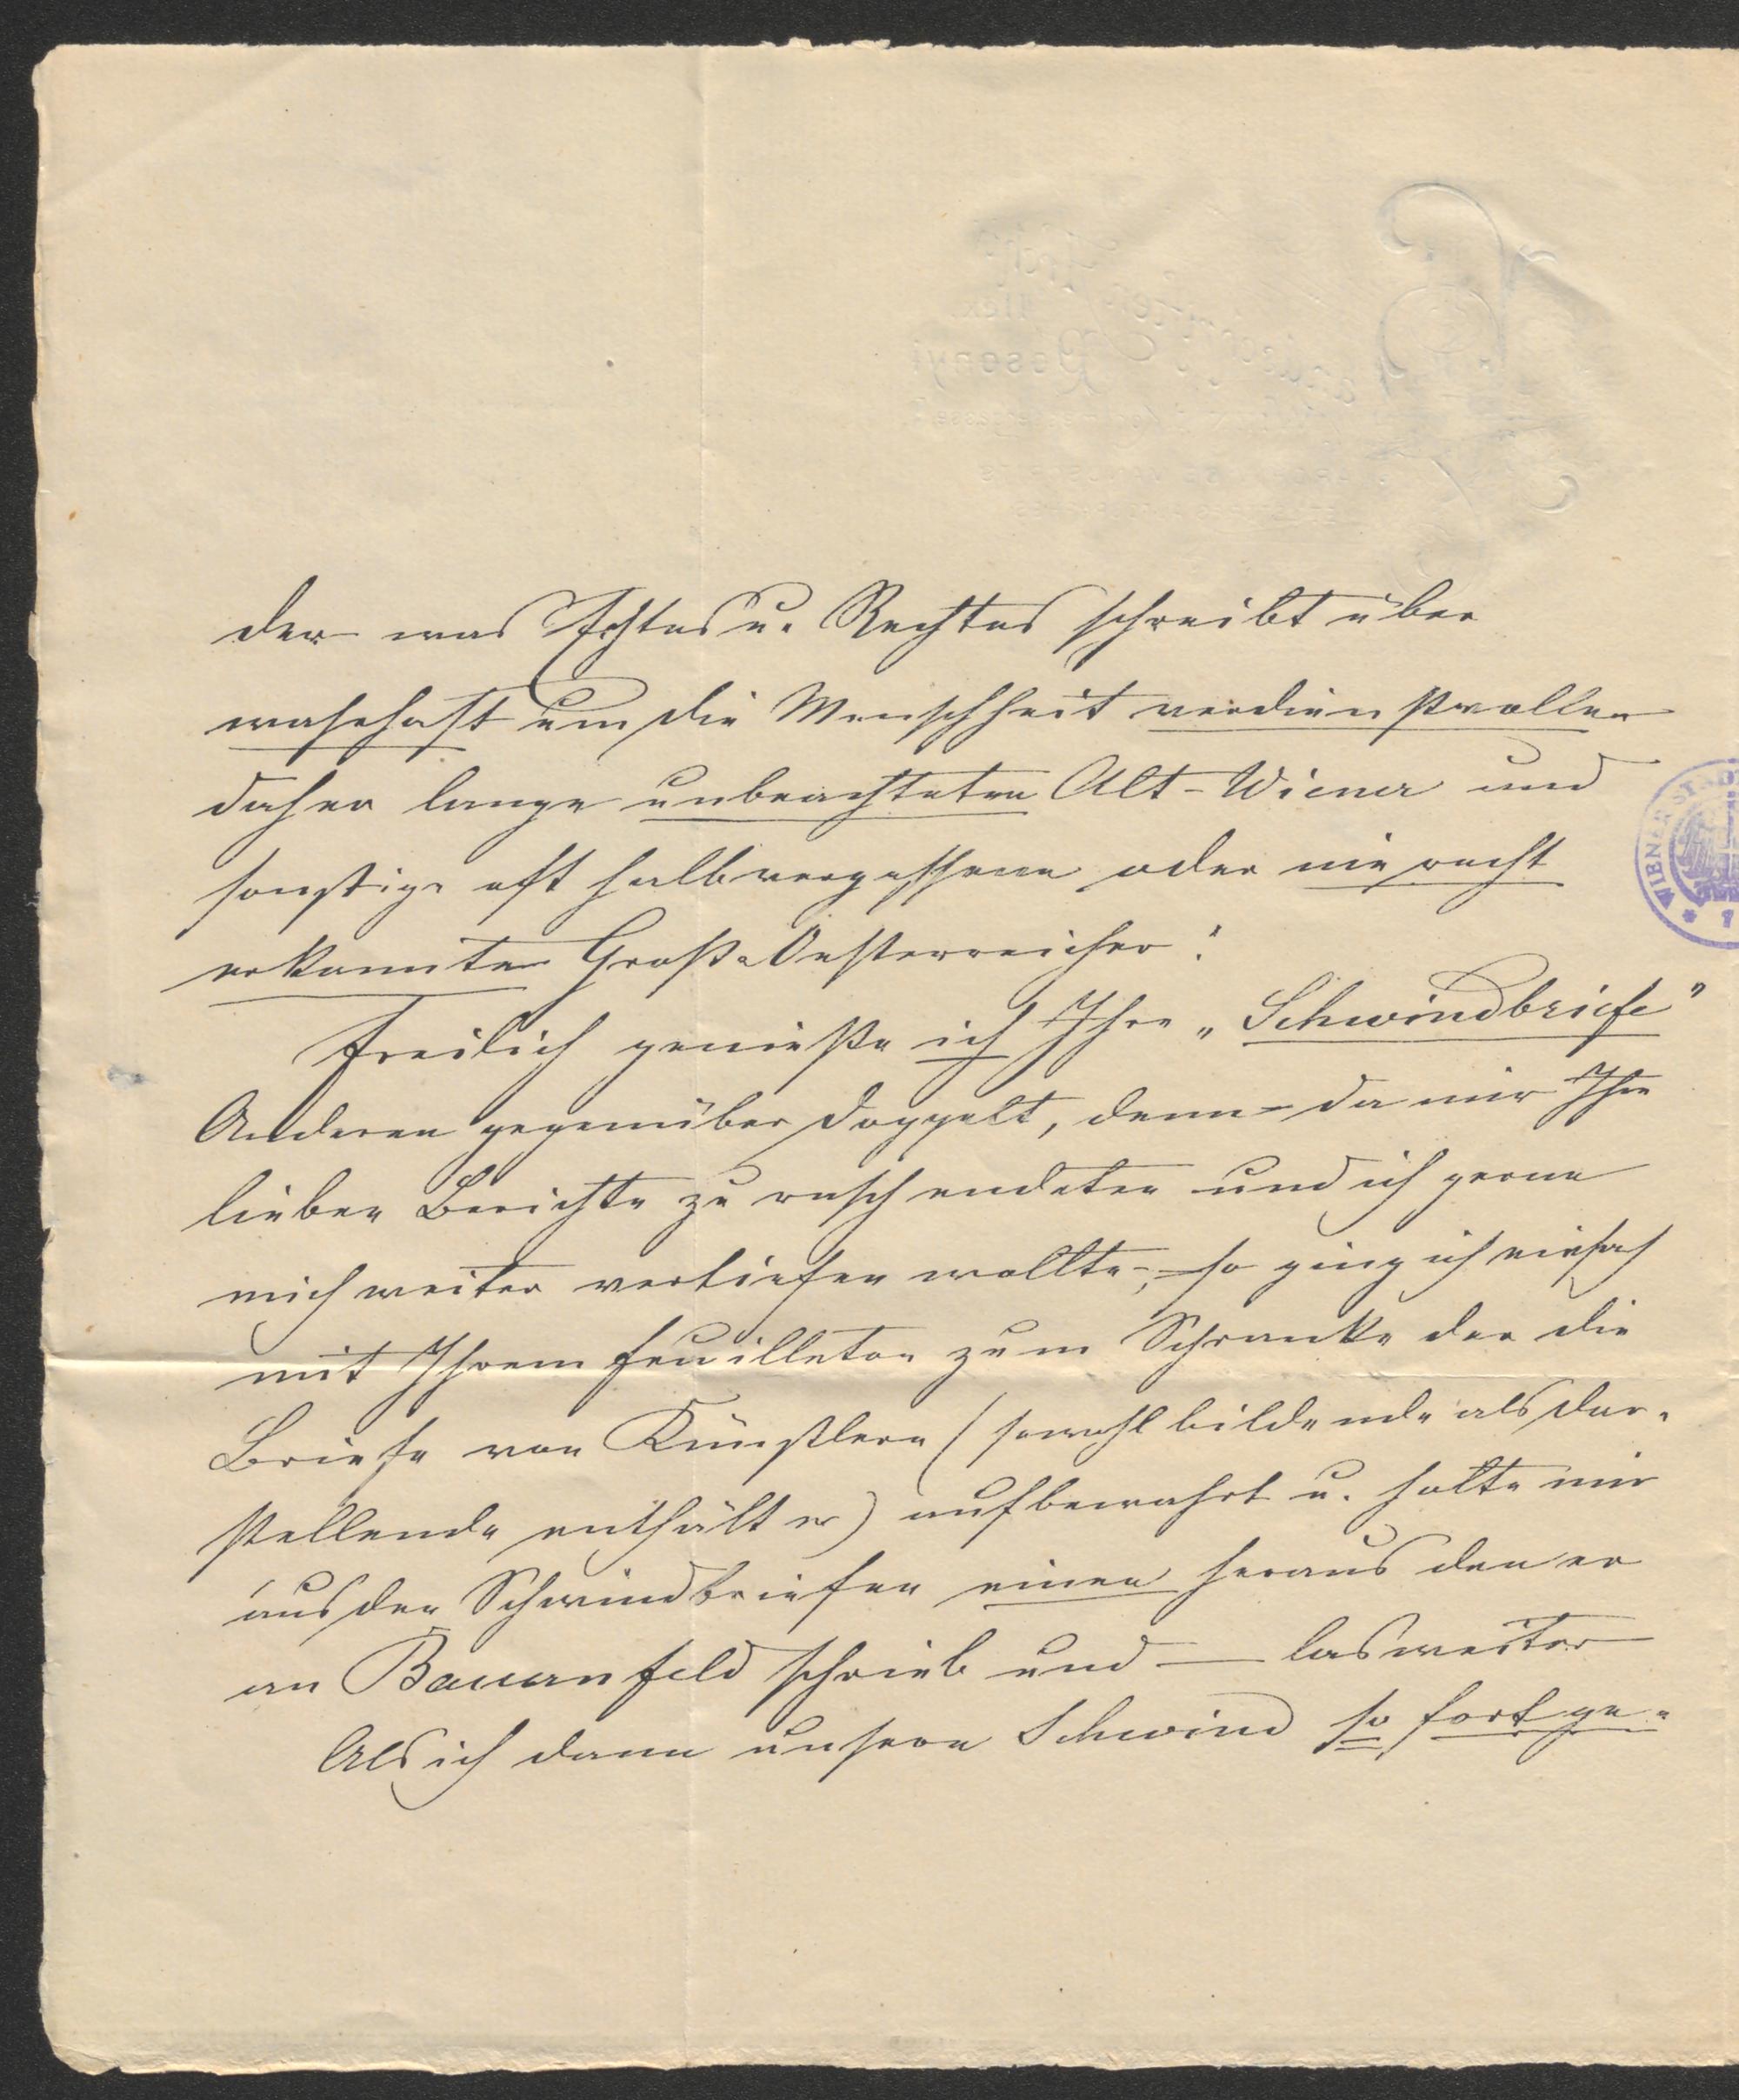 der was Echtes u. Rechtes schreibt über
wahrhaft um die Menschheit verdienstvollen
daher lange unbeachteten Alt-Wiener und
sonstige oft halbvergessene oder nie recht
erkannte Groß-Oesterreicher".
Freilich genieße ich Ihre „Schwindbriefe"
Anderen gegenüber doppelt, denn – da mir Ihre
lieben Berichte zu rasch endeten und ich gerne
mich weiter vertiefen wollte –, so ging ich einfach
mit Ihrem Feuilleton zum Schranke der die
Briefe von Künstlern (sowohl bildende als dar-
stellende enthält er) aufbewahrt u. holte mir
aus den Schwindbriefen einen heraus den er
an Bauernfeld schrieb und — las weiter
Als ich dann unsern Schwind so fort ge-
WIENER STAD